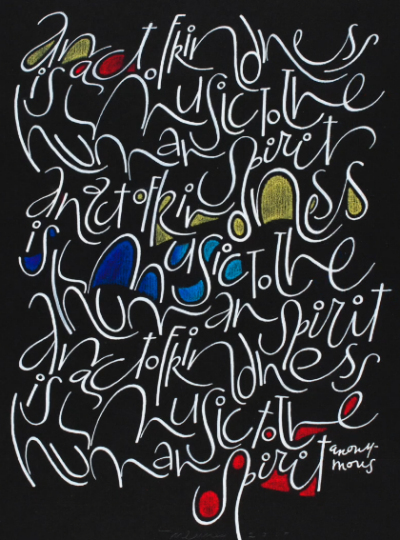 an act of kindness
is music to the
human spirit
an act of kindness
is music to the
human spirit
an act of kindness
is music to the
human spirit
anony-
mous